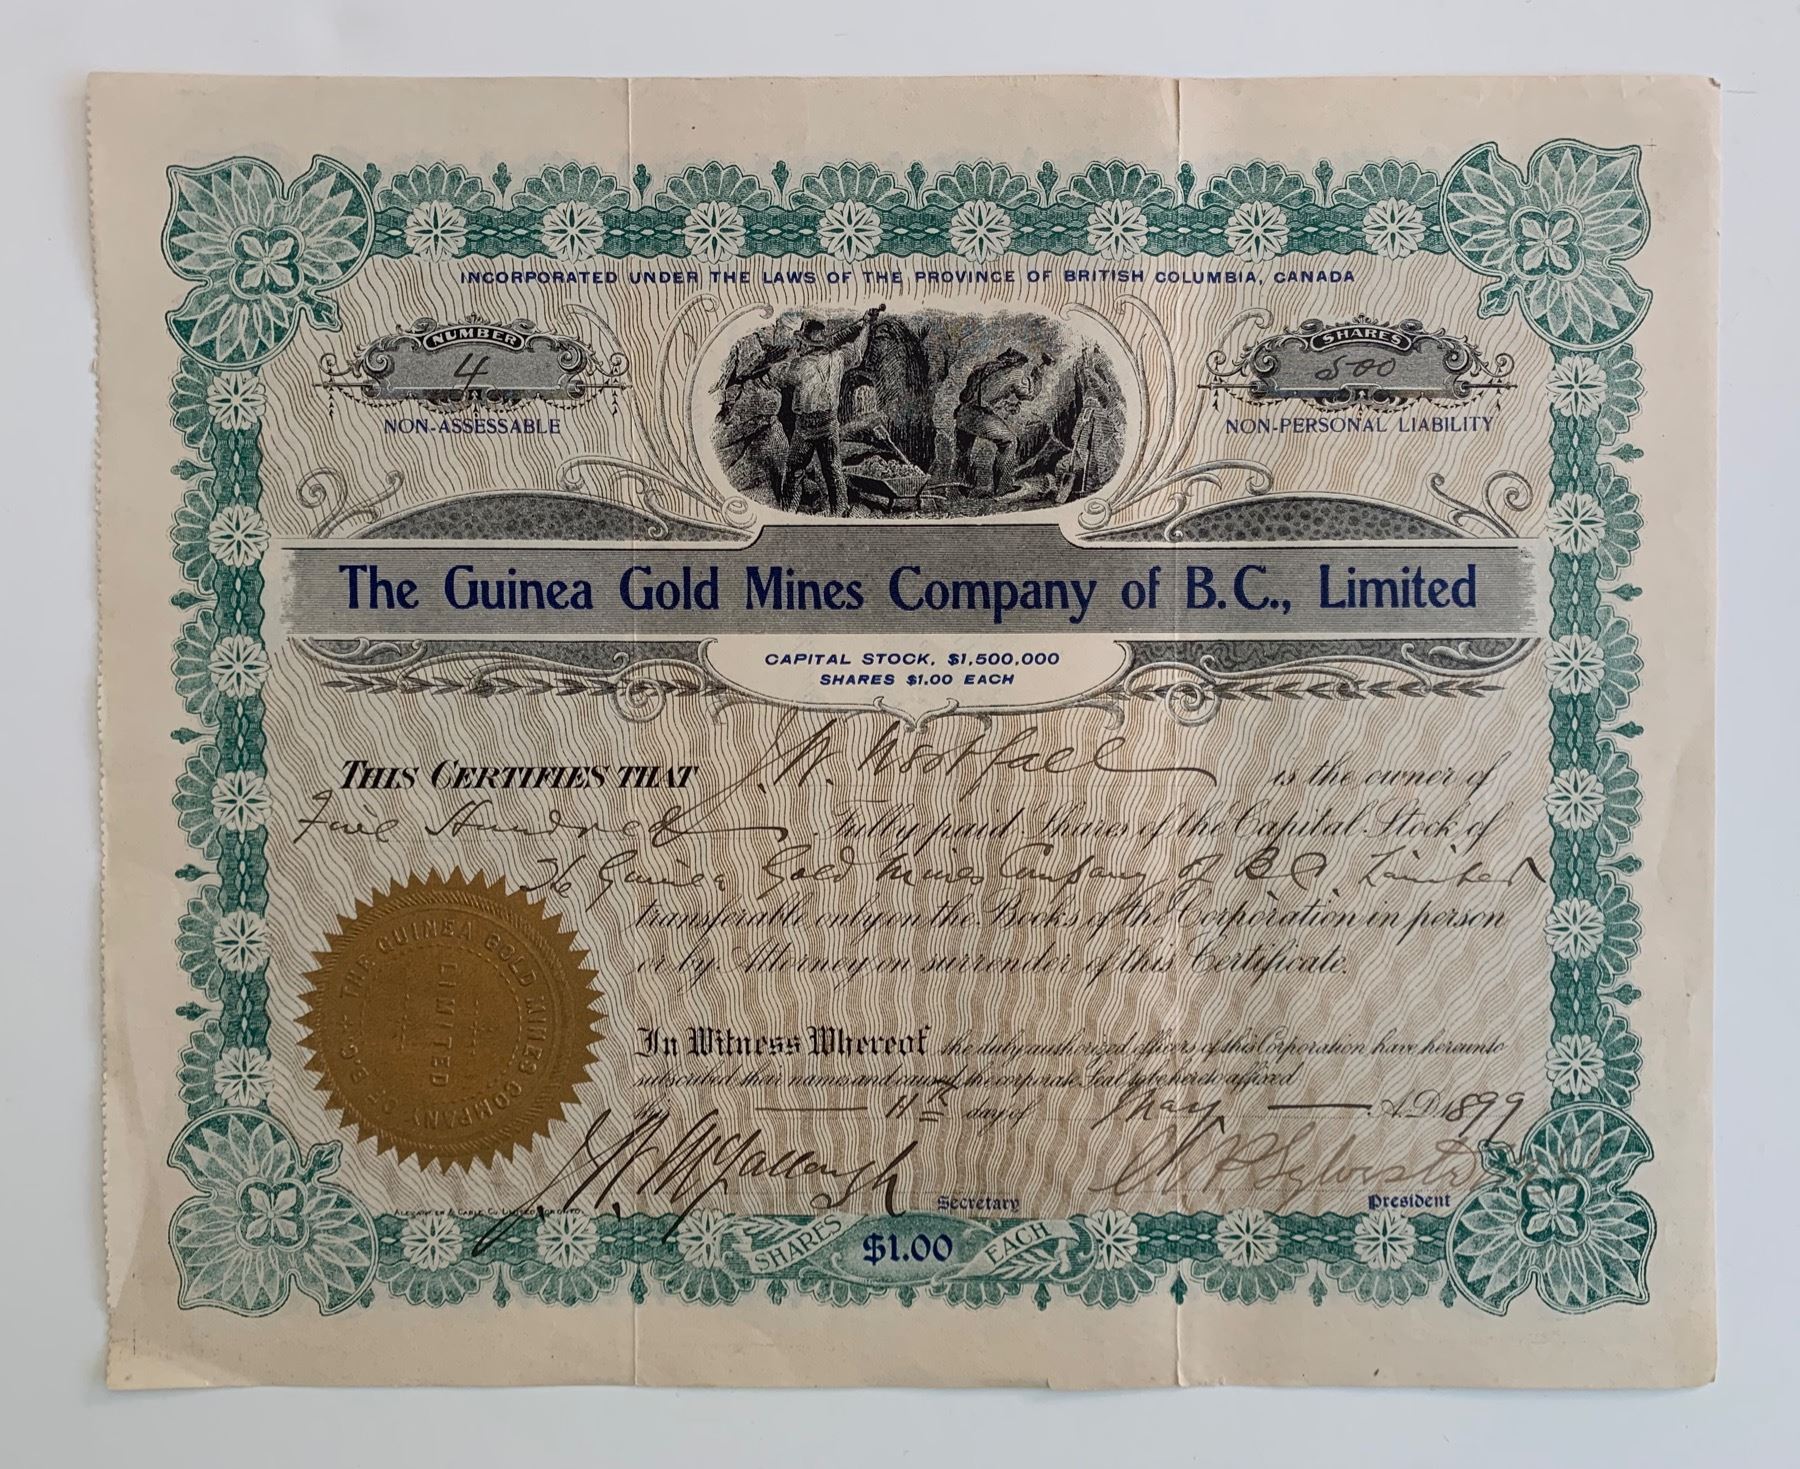 INCORPORATED UNDER THE LAWS OF THE PROVINCE OF BRITISH COLUMBIA, CANADA
NUMBER
4
NON-ASSESSABLE
SHARES
500
NON-PERSONAL LIABILITY
The Guinea Gold Mines Company of B.C., Limited
CAPITAL STOCK, $1,500,000
SHARES $1.00 EACH
THIS CERTIFIES THAT J. W. Westfall is the owner of
Five Hundred Fully paid Shares of the Capital Stock of
The Guinea Gold Mines Company of B.C. Limited
transferable only on the Books of the Corporation in person
or by Attorney on surrender of this Certificate.
In Witness Whereof the duly authorized officers of this Corporation have hereunto
subscribed their names and caused the corporate Seal to be hereto affixed
11th day of May A.D. 1899
THE GUINEA GOLD MINES COMPANY OF B.C.
LIMITED
Secretary
President
ALEXANDER & CABLE CO LIMITED TORONTO
SHARES $1.00 EACH